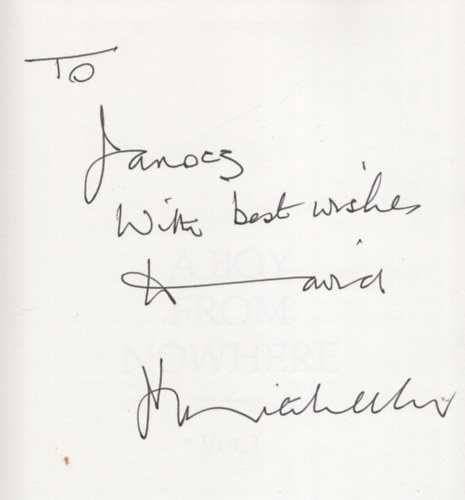 To
With best wishes
David
A BOY
FROM
NOWHERE
VOL 1